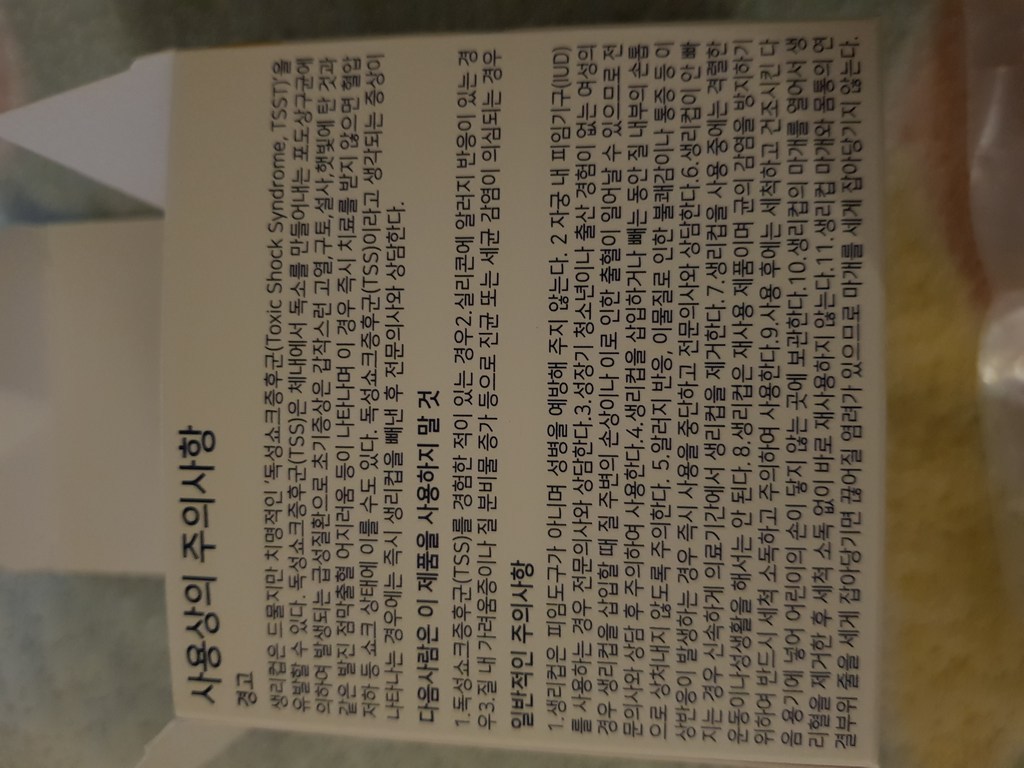 사용상의 주의사항
경고
생리컵은 드물지만 치명적인 '독성쇼크증후군(Toxic Shock Syndrome, TSST)'을
유발할 수 있다. 독성쇼크증후군(TSS)은 체내에서 독소를 만들어내는 포도상구균에
의하여 발생되는 급성질환으로 초기증상은 갑작스런 고열,구토,설사,햇빛에 탄 것과
같은 발진 점막출혈 어지러움 등이 나타나며 이 경우 즉시 치료를 받지 않으면 혈압
저하 등 쇼크 상태에 이를 수도 있다. 독성쇼크증후군(TSS)이라고 생각되는 증상이
나타나는 경우에는 즉시 생리컵을 빼낸 후 전문의사와 상담한다.
다음사람은 이 제품을 사용하지 말 것
1.독성쇼크증후군(TSS)를 경험한 적이 있는 경우2.실리콘에 알러지 반응이 있는 경
우3.질 내 가려움증이나 질 분비물 증가 등으로 진균 또는 세균 감염이 의심되는 경우
일반적인 주의사항
1.생리컵은 피임도구가 아니며 성병을 예방해 주지 않는다. 2 자궁 내 피임기구(IUD)
를 사용하는 경우 전문의사와 상담한다.3.성장기 청소년이나 출산 경험이 없는 여성의
경우 생리컵을 삽입할 때 질 주변의 손상이나 이로 인한 출혈이 일어날 수 있으므로 전
문의사와 상담 후 주의하여 사용한다.4.생리컵을 삽입하거나 빼는 동안 질 내부의 손톱
으로 상처내지 않도록 주의한다. 5.알러지 반응, 이물질로 인한 불쾌감이나 통증 등 이
상반응이 발생하는 경우 즉시 사용을 중단하고 전문의사와 상담한다.6.생리컵이 안 빠
지는 경우 신속하게 의료기관에서 생리컵을 제거한다. 7.생리컵을 사용 중에는 격렬한
운동이나성생활을 해서는 안 된다. 8.생리컵은 재사용 제품이며 균의 감염을 방지하기
위하여 반드시 세척 소독하고 주의하여 사용한다.9.사용 후에는 세척하고 건조시킨 다
음 용기에 넣어 어린이의 손이 닿지 않는 곳에 보관한다.10.생리컵의 마개를 열어서 생
리혈을 제거한 후 세척 소독 없이 바로 재사용하지 않는다.11.생리컵 마개와 몸통의 연
결부위 줄을 세게 잡아당기면 끊어질 염려가 있으므로 마개를 세게 잡아당기지 않는다.